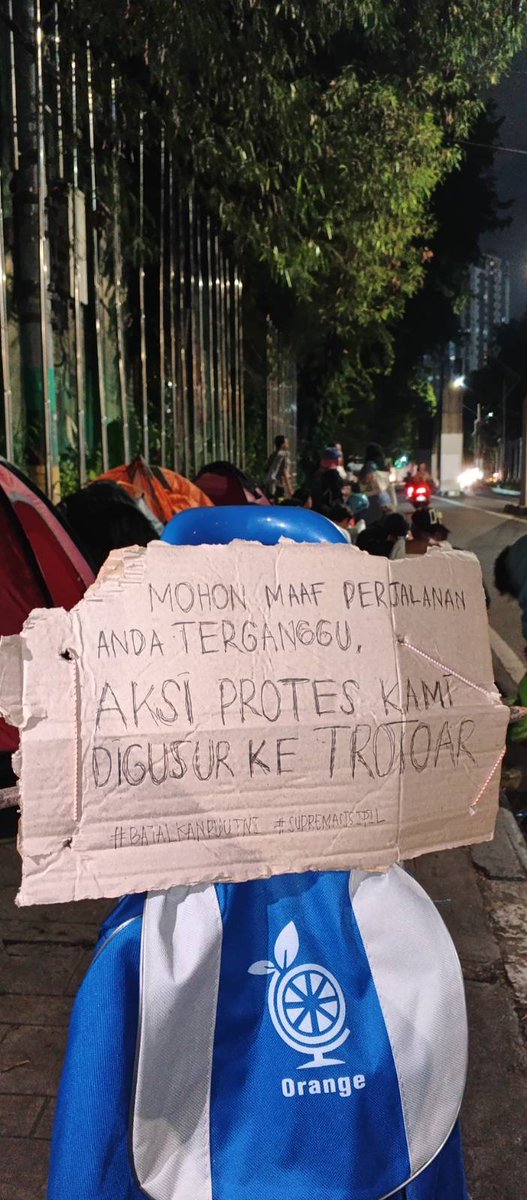 MOHON MAAF PERJALANAN
ANDA TERGANGGU,
AKSI PROTES KAMI
DIGUSUR KE TROTOAR
#BATALKANRUUTNI #SUPREMASISIPIL
Orange